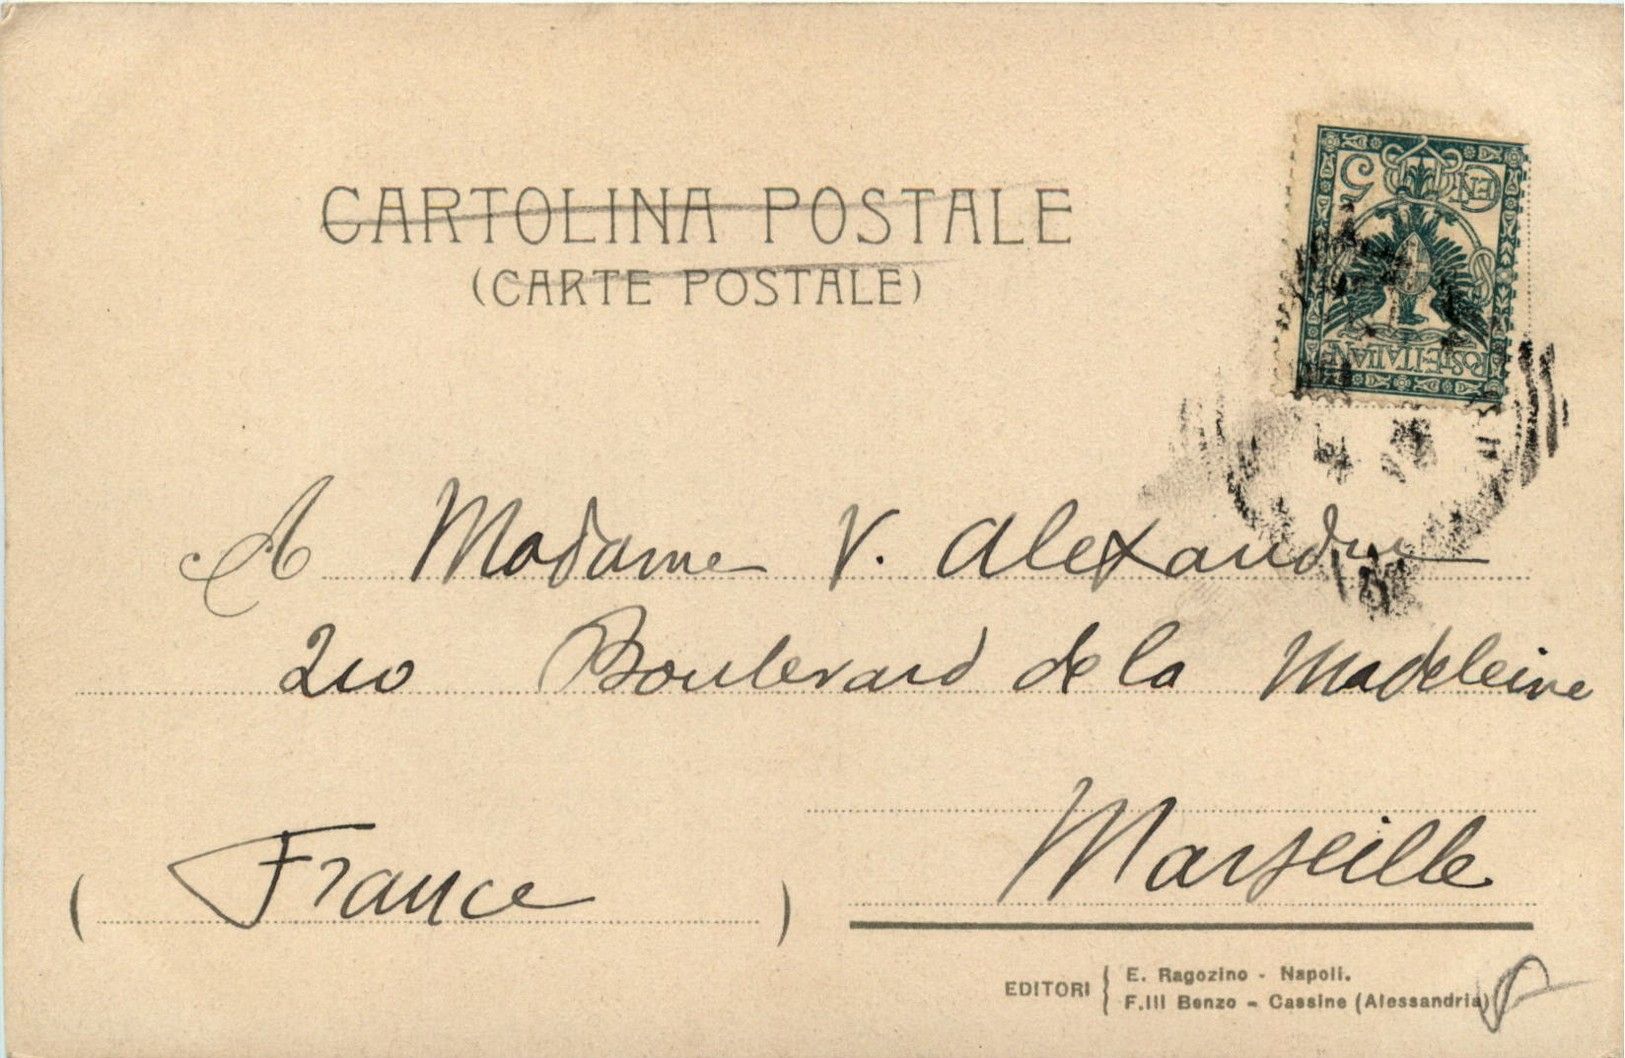 CARTOLINA POSTALE
(CARTE POSTALE)
CENT 5
POSTE·ITALIANE
A Madame V. Alexandre
210 Boulevard de la Madeleine
Marseille
(France)
EDITORI { E. Ragozino - Napoli.
F.lli Benzo - Cassine (Alessandria)